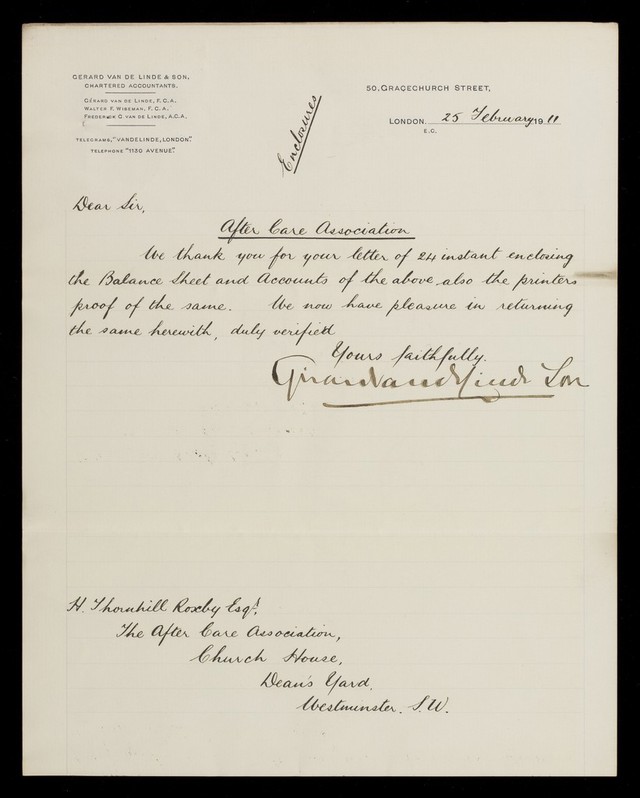 GERARD VAN DE LINDE & SON,
CHARTERED ACCOUNTANTS.
GÉRARD VAN DE LINDE, F.C.A.
WALTER F. WISEMAN, F.C.A.
FREDERICK C VAN DE LINDE, A.C.A.
TELEGRAMS, "VANDELINDE, LONDON."
TELEPHONE "1130 AVENUE."
Enclosures
50, GRACECHURCH STREET,
LONDON, 25 February 1911
E.C.
Dear Sir,
After Care Association
We thank you for your letter of 24 instant enclosing
the Balance Sheet and Accounts of the above, also the printers
proof of the same. We now have pleasure in returning
the same herewith, duly verified
Yours faithfully.
Gerard van de Linde & Son
H. Thornhill Roxby Esqr,
The After Care Association,
Church House,
Dean's Yard,
Westminster. S.W.